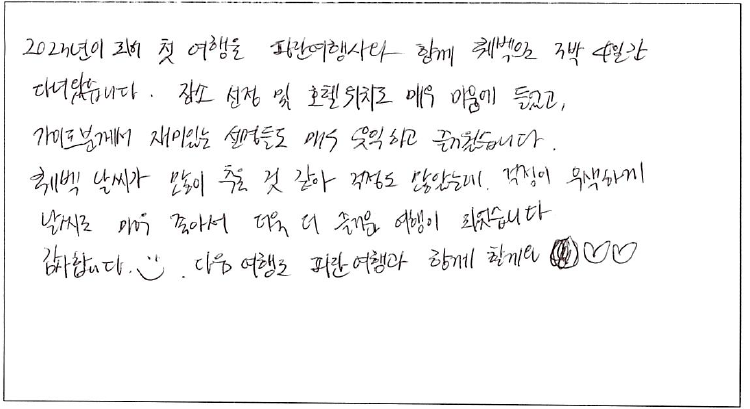 2025년이 되어 첫 여행을 파란여행사와 함께 퀘벡으로 3박 4일간
다녀왔습니다. 장소 선정 및 호텔 위치도 매우 마음에 들었고,
가이드분께서 재미있는 설명들도 매우 유익하고 즐거웠습니다.
퀘벡 날씨가 많이 추울 것 같아 걱정도 많았는데, 걱정이 무색하게
날씨도 매우 좋아서 더욱 더 즐거운 여행이 되었습니다
감사합니다. 다음 여행도 파란여행과 함께 할게요 ♡♡